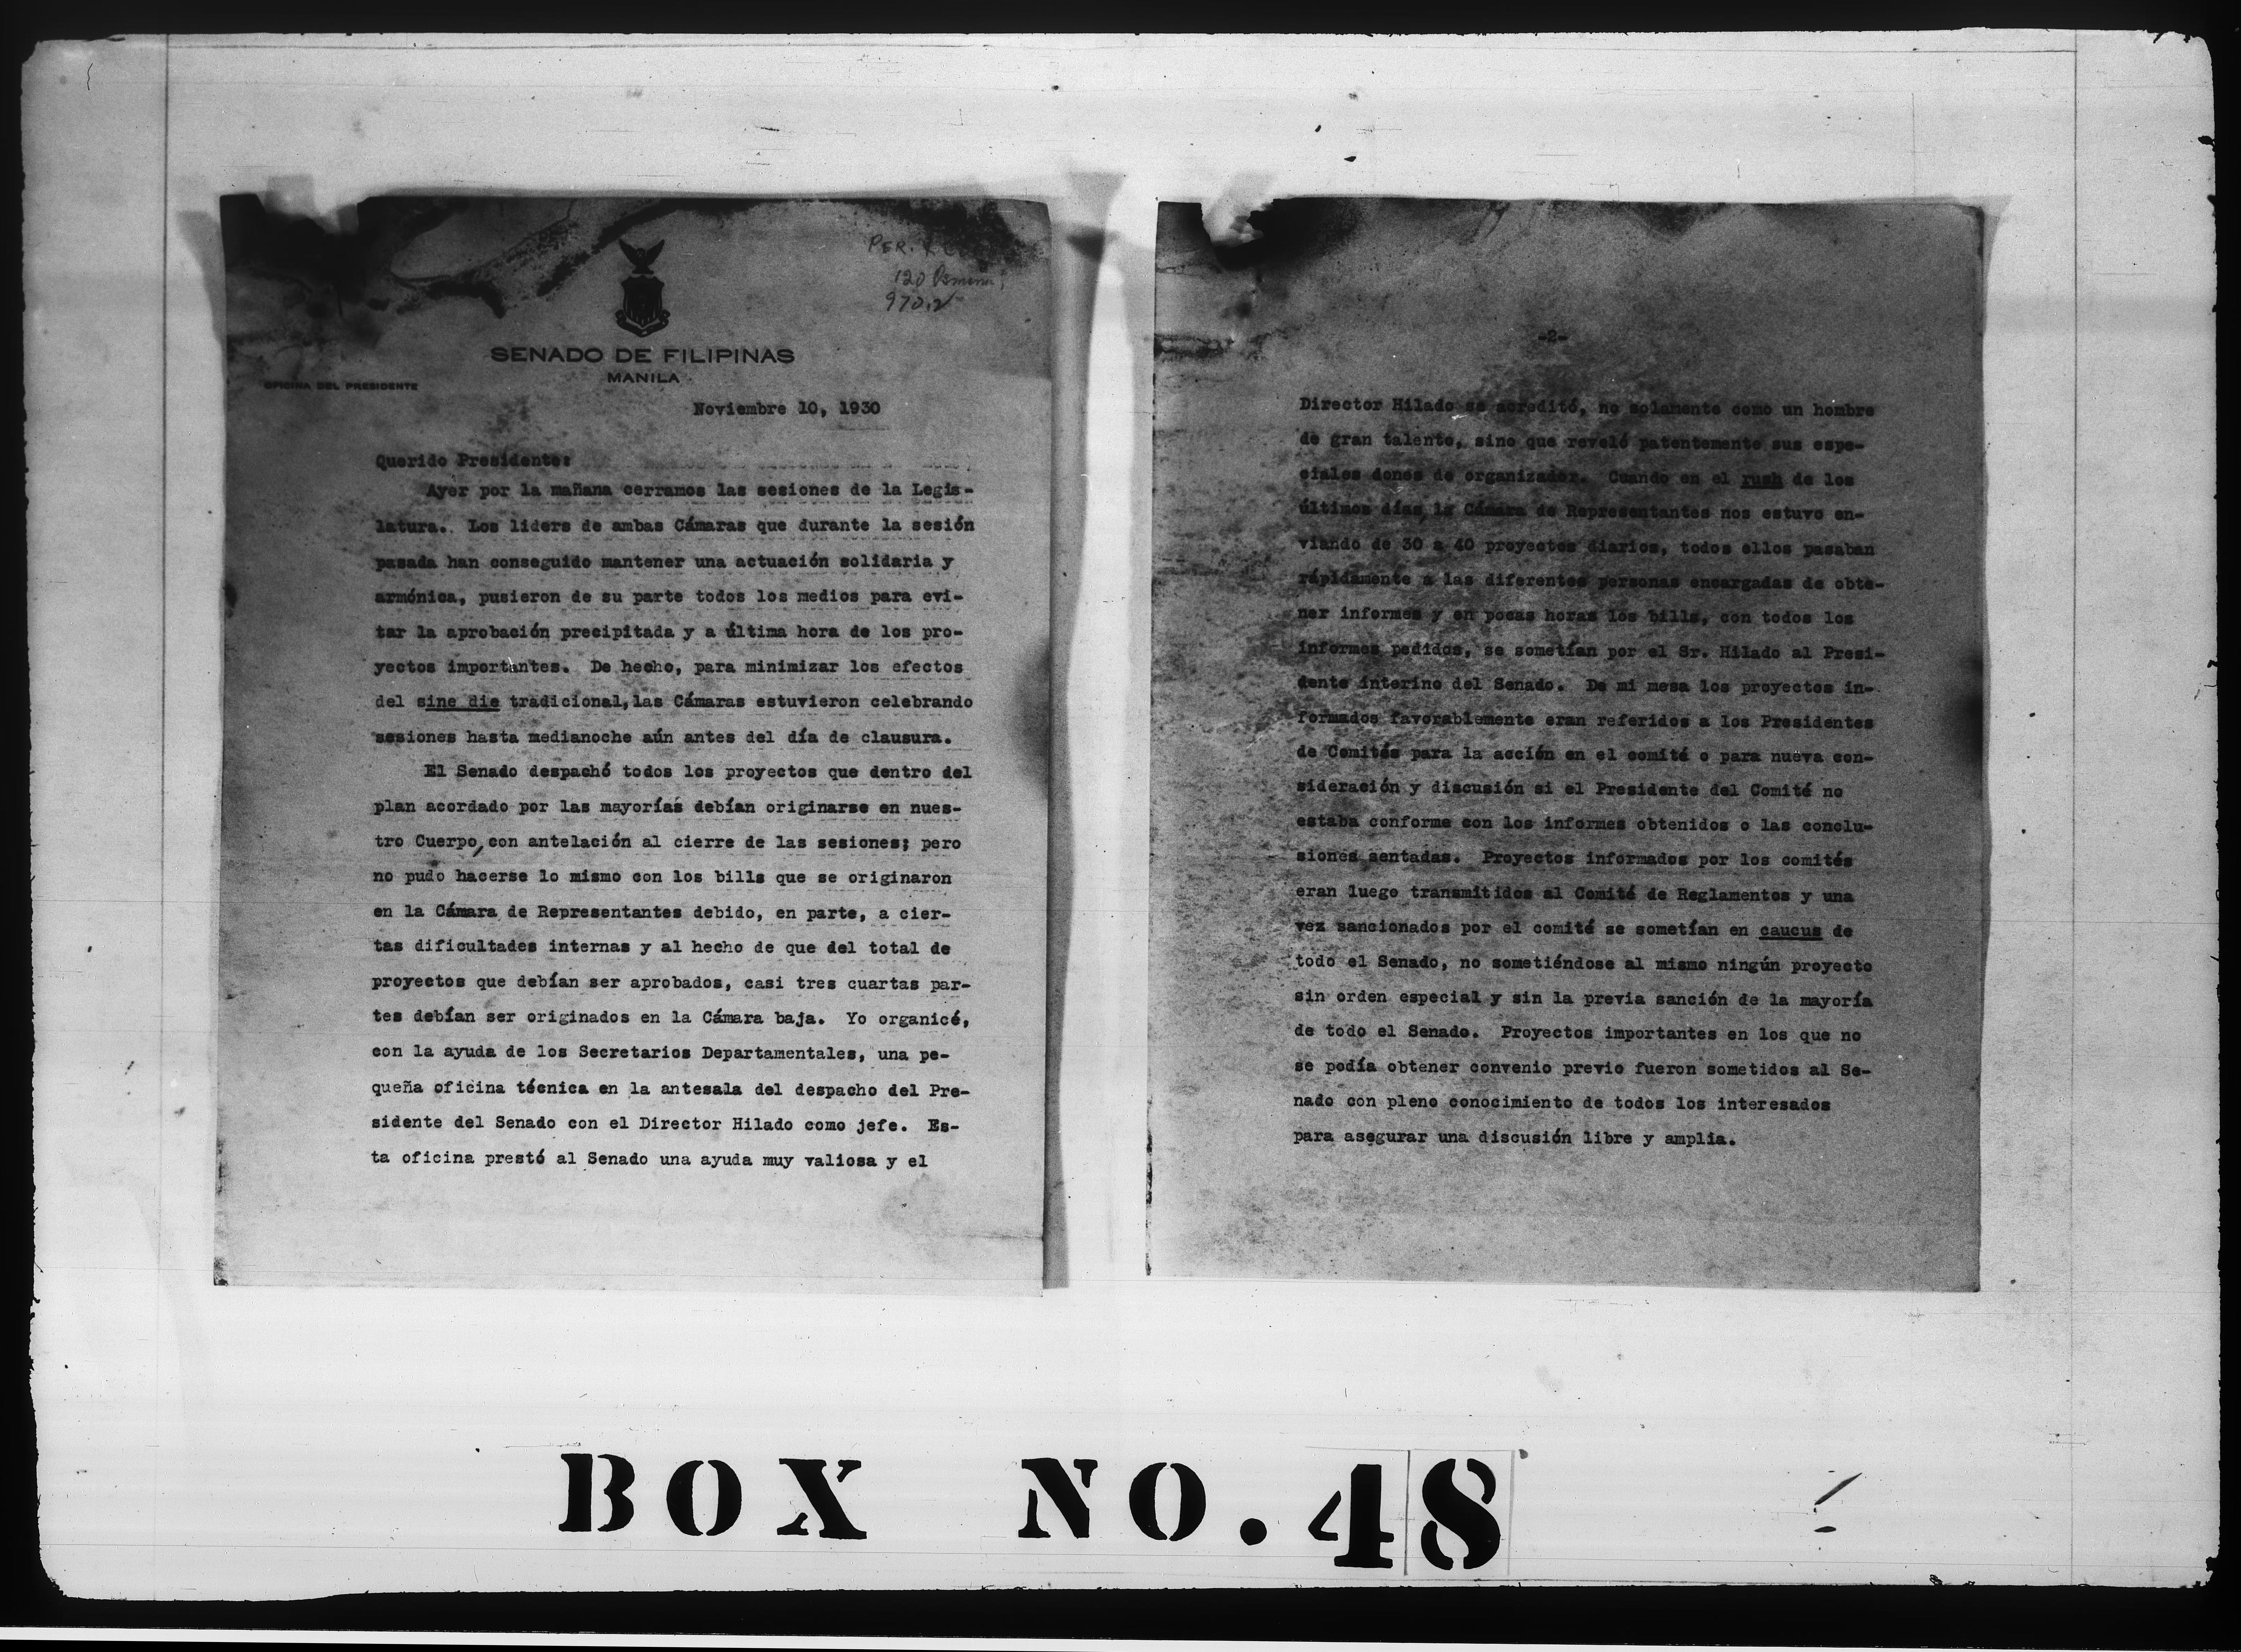 PER.
120
970.2
SENADO DE FILIPINAS
MANILA
OFICINA DEL PRESIDENTE
Noviembre 10, 1930
Querido Presidente:
Ayer por la mañana cerramos las sesiones de la Legis-
latura. Los liders de ambas Cámaras que durante la sesión
pasada han conseguido mantener una actuación solidaria y
armónica, pusieron de su parte todos los medios para evi-
tar la aprobación precipitada y a última hora de los pro-
yectos importantes. De hecho, para minimizar los efectos
del sine die tradicional, las Cámaras estuvieron celebrando
sesiones hasta medianoche aún antes del día de clausura.
El Senado despachó todos los proyectos que dentro del
plan acordado por las mayorías debían originarse en nues-
tro Cuerpo, con antelación al cierre de las sesiones; pero
no pudo hacerse lo mismo con los bills que se originaron
en la Cámara de Representantes debido, en parte, a cier-
tas dificultades internas y al hecho de que del total de
proyectos que debían ser aprobados, casi tres cuartas par-
tes debían ser originados en la Cámara baja. Yo organicé,
con la ayuda de los Secretarios Departamentales, una pe-
queña oficina técnica en la antesala del despacho del Pre-
sidente del Senado con el Director Hilado como jefe. Es-
ta oficina prestó al Senado una ayuda muy valiosa y el
-2-
Director Hilado se acreditó, no solamente como un hombre
de gran talento, sino que reveló patentemente sus espe-
ciales dones de organizador. Cuando en el rush de los
últimos días, la Cámara de Representantes nos estuvo en-
viando de 30 a 40 proyectos diarios, todos ellos pasaban
rápidamente a las diferentes personas encargadas de obte-
ner informes y en pocas horas los bills, con todos los
informes pedidos, se sometían por el Sr. Hilado al Presi-
dente interino del Senado. De mi mesa los proyectos in-
formados favorablemente eran referidos a los Presidentes
de Comités para la acción en el comité o para nueva con-
sideración y discusión si el Presidente del Comité no
estaba conforme con los informes obtenidos o las conclu-
siones sentadas. Proyectos informados por los comités
eran luego transmitidos al Comité de Reglamentos y una
vez sancionados por el comité se sometían en caucus de
todo el Senado, no sometiéndose al mismo ningún proyecto
sin orden especial y sin la previa sanción de la mayoría
de todo el Senado. Proyectos importantes en los que no
se podía obtener convenio previo fueron sometidos al Se-
nado con pleno conocimiento de todos los interesados
para asegurar una discusión libre y amplia.
BOX NO. 48